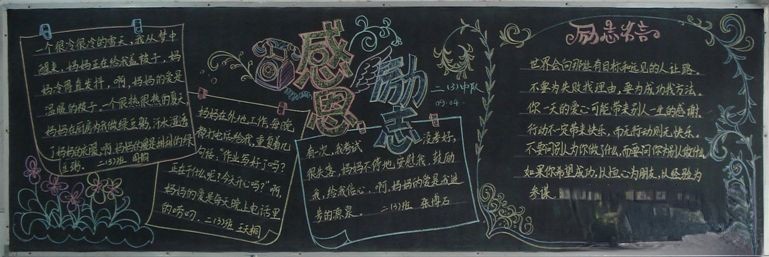 一个很冷很冷的雪天，我从梦中
醒来，妈妈正在给我盖被子，妈
妈冷得直发抖，啊，妈妈的爱是
温暖的被子。一个很热很热的夏天，
妈妈在厨房为我做绿豆粥，汗水湿透
了妈妈的衣服，啊，妈妈的爱是甜甜的绿
豆粥。二(3)班
妈妈在外地工作，每晚
都打电话给我，重复着几
句话：“作业写好了吗？
正在干什么呢？今天开心吗？”啊，
妈妈的爱是每天晚上电话里
的唠叨。二(3)班 王天桐
感恩
励志
二(3)中队
09.04
有一次，我考试没考好，
很伤心，妈妈不停地安慰我，鼓励
我，给我信心，啊，妈妈的爱是我进
步的源泉。二(3)班 张博石
励志名言
世界会向那些有目标和远见的人让路。
不要为失败找理由，要为成功找方法。
你一天的爱心可能带来别人一生的感谢。
行动不一定带来快乐，而无行动则无快乐。
不要问别人为你做了什么，而要问你为别人做什么。
如果你希望成功，以恒心为朋友，以经验为
参谋。